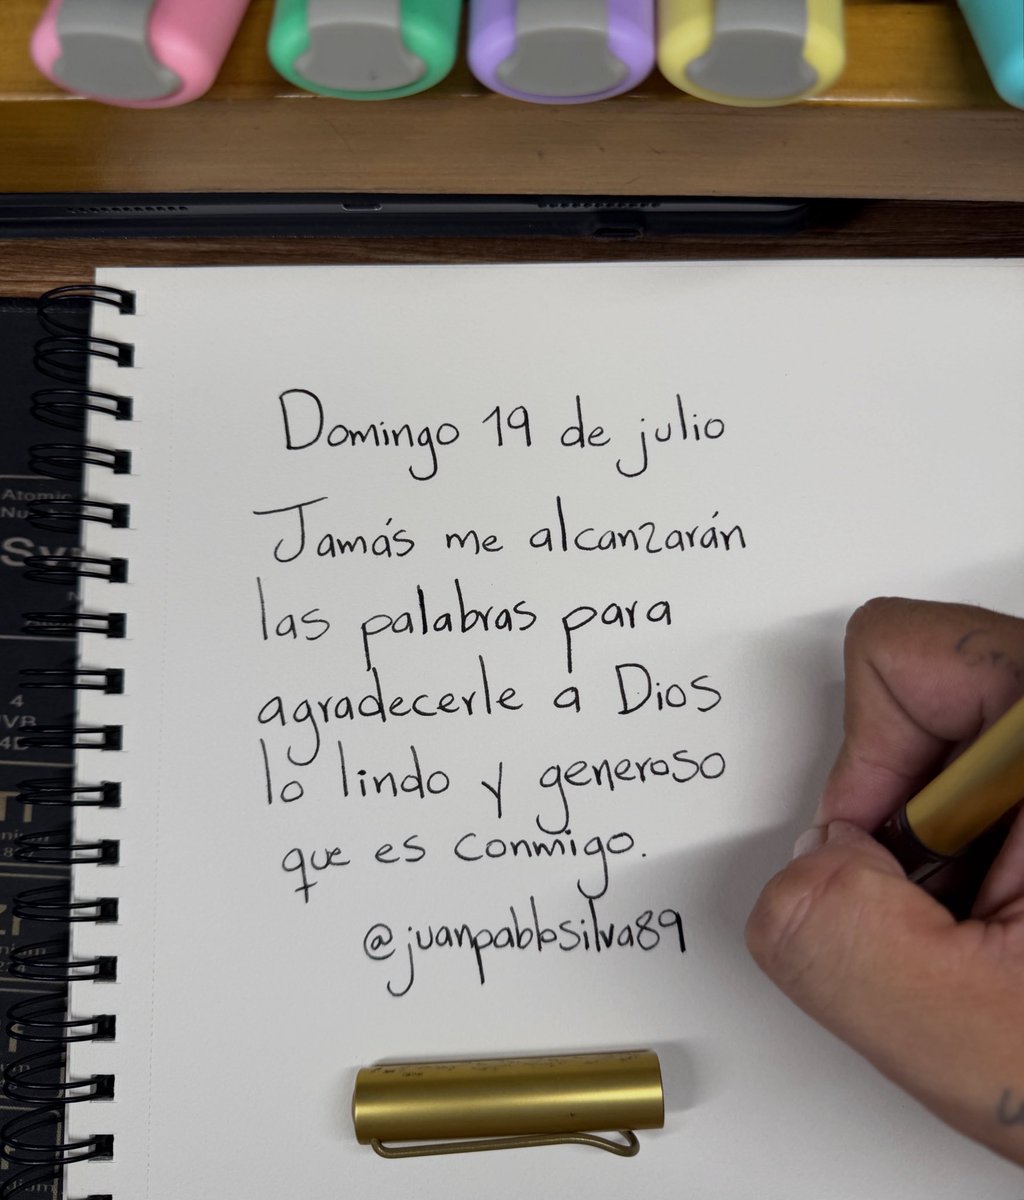 Domingo 19 de julio
Jamás me alcanzarán
las palabras para
agradecerle a Dios
lo lindo y generoso
que es conmigo.
@juanpablosilva89
Atomic
4